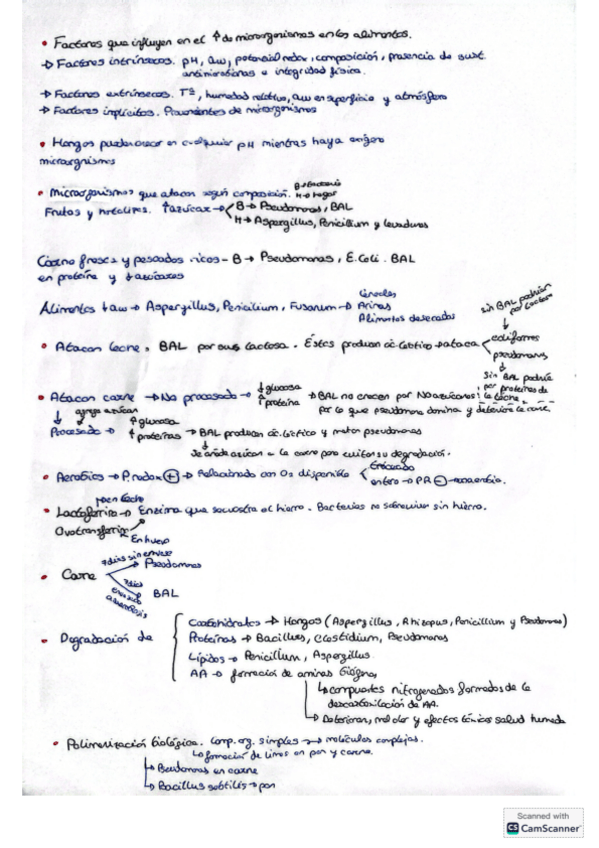 • Factores que influyen en el ↑ de microorganismos en los alimentos.
→ Factores intrínsecos. pH, aw, potencial redox, composición, presencia de sust.
antimicrobianas e integridad física.
→ Factores extrínsecos. Tª, humedad relativa, aw en superficie y atmósfera
→ Factores implícitos. Provenientes de microorganismos
• Hongos pueden crecer en cualquier pH mientras haya oxígeno
microorganismos
• Microorganismos que atacan según composición. B → bacteria
H → hongo
Frutas y hortalizas. ↑ azúcar → B → Pseudomonas, BAL
H → Aspergillus, Penicillium y levaduras
Carne fresca y pescados ricos - B → Pseudomonas, E.Coli. BAL
en proteína y ↓ azúcares
Alimentos ↓ aw → Aspergillus, Penicilium, Fusarum → Cereales
Arinas
Alimentos desecados
• Atacan leche. BAL por sus lactosa. Éstas producen ác. láctico → ataca
coliformes
pseudomonas
sin BAL podrían
por lactosa
Sin BAL podría
por proteínas de
la leche
• Atacan carne → No procesado → ↓ glucosa
↑ proteína → BAL no crecen por No azúcares
por lo que pseudomona domina y deteriora la carne.
agrego azúcar
Procesado → ↑ glucosa
↑ proteínas → BAL producen ác. láctico y matan pseudomonas
Se añade azúcar a la carne para evitar su degradación.
• Aerobios → P. redox (+) → Relacionado con O2 disponible
entero → PR (-) → anaerobio.
en leche
• Lactoferrina → Enzima que secuestra el hierro. Bacterias no sobreviven sin hierro.
Ovotransferrina
En huevo
• Carne
7 dias sin envase
Pseudomonas
7 dias
BAL
• Degradación de
Carbohidratos → Hongos (Aspergillus, Rhizopus, Penicillium y Pseudomonas)
Proteínas → Bacillus, Clostidium, Pseudomonas
Lípidos → Penicillum, Aspergillus
AA → formación de aminas biógenas
↳ compuestos nitrogenados formados de la
descarboxilación de AA.
↳ Deterioran, mal olor y efectos tóxicos salud humana
• Polimerización biológica. Comp. org. simples → moléculas complejas.
↳ formación de limos en pan y carne.
↳ Pseudomonas en carne
↳ Bacillus subtilis → pan
Scanned with
CS CamScanner